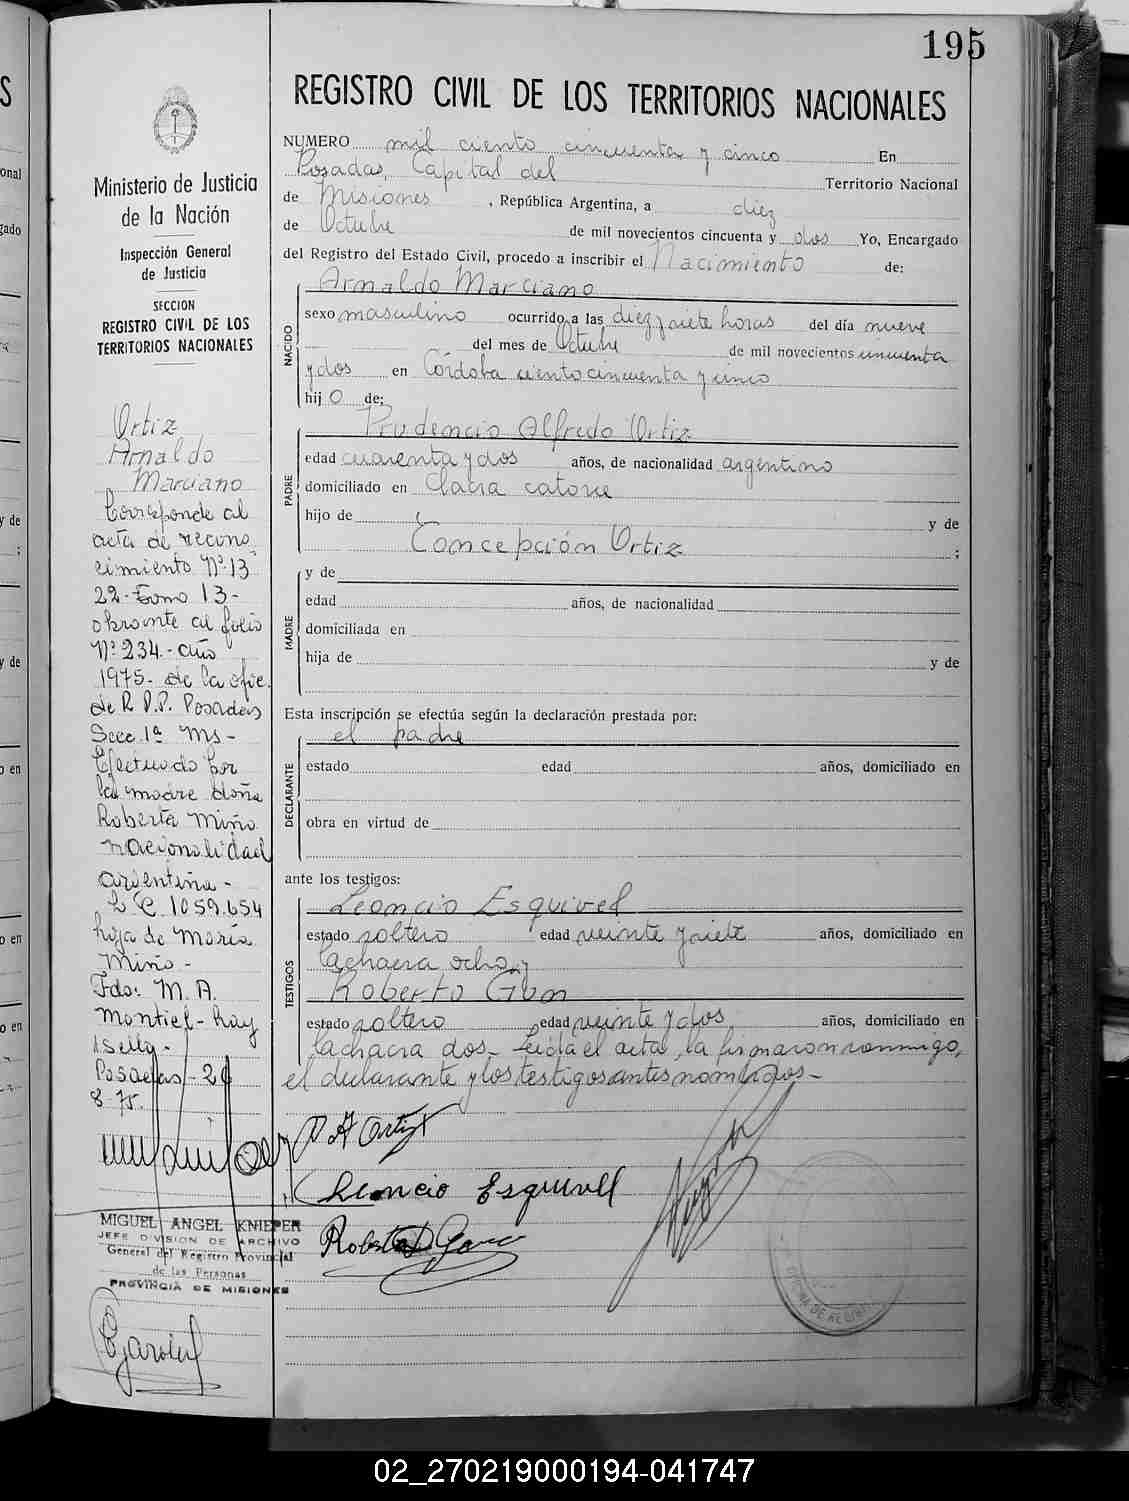 195
REGISTRO CIVIL DE LOS TERRITORIOS NACIONALES
NUMERO mil ciento cincuenta y cinco En
Posadas, Capital del Territorio Nacional
de Misiones, República Argentina, a diez
de Octubre de mil novecientos cincuenta y dos Yo, Encargado
del Registro del Estado Civil, procedo a inscribir el Nacimiento de:
Arnaldo Marciano
NACIDO
sexo masculino ocurrido a las diez y siete horas del día nueve
del mes de Octubre de mil novecientos cincuenta
y dos en Córdoba ciento cincuenta y cinco
hijo de:
Prudencio Alfredo Ortiz
PADRE
edad cuarenta y dos años, de nacionalidad argentino
domiciliado en Chacra catorce
hijo de y de
Concepción Ortiz ;
MADRE
y de
edad años, de nacionalidad
domiciliada en
hija de y de
Esta inscripción se efectúa según la declaración prestada por:
el padre
DECLARANTE
estado edad años, domiciliado en
obra en virtud de
ante los testigos:
Leoncio Esquivel
TESTIGOS
estado soltero edad veinte y siete años, domiciliado en
la chacra ocho, y
Roberto
estado soltero edad veinte y dos años, domiciliado en
la chacra dos.- Leida el acta, la firmaron conmigo,
el declarante y los testigos antes nombrados.-
P A Ortiz
Leoncio Esquivell
Ministerio de Justicia
de la Nación
Inspección General
de Justicia
SECCION
REGISTRO CIVIL DE LOS
TERRITORIOS NACIONALES
Ortiz
Arnaldo
Marciano
Corresponde al
acta de recono
cimiento Nº 13
22- Tomo 13-
obrante al folio
Nº 234.- año
1975- de la ofic.
de R.P.P. Posadas
Secc. 1ª Ms-
Efectuado por
la madre doña
Roberta Miño
nacionalidad
argentina-
L C. 1059.654
hija de María
Miño-
Fdo: M. A.
Montiel- hay
1 sello-
Posadas- 20
8-75.
MIGUEL ANGEL KNIEPER
JEFE DIVISION DE ARCHIVO
General del Registro Provincial
de las Personas
PROVINCIA DE MISIONES
02_270219000194-041747